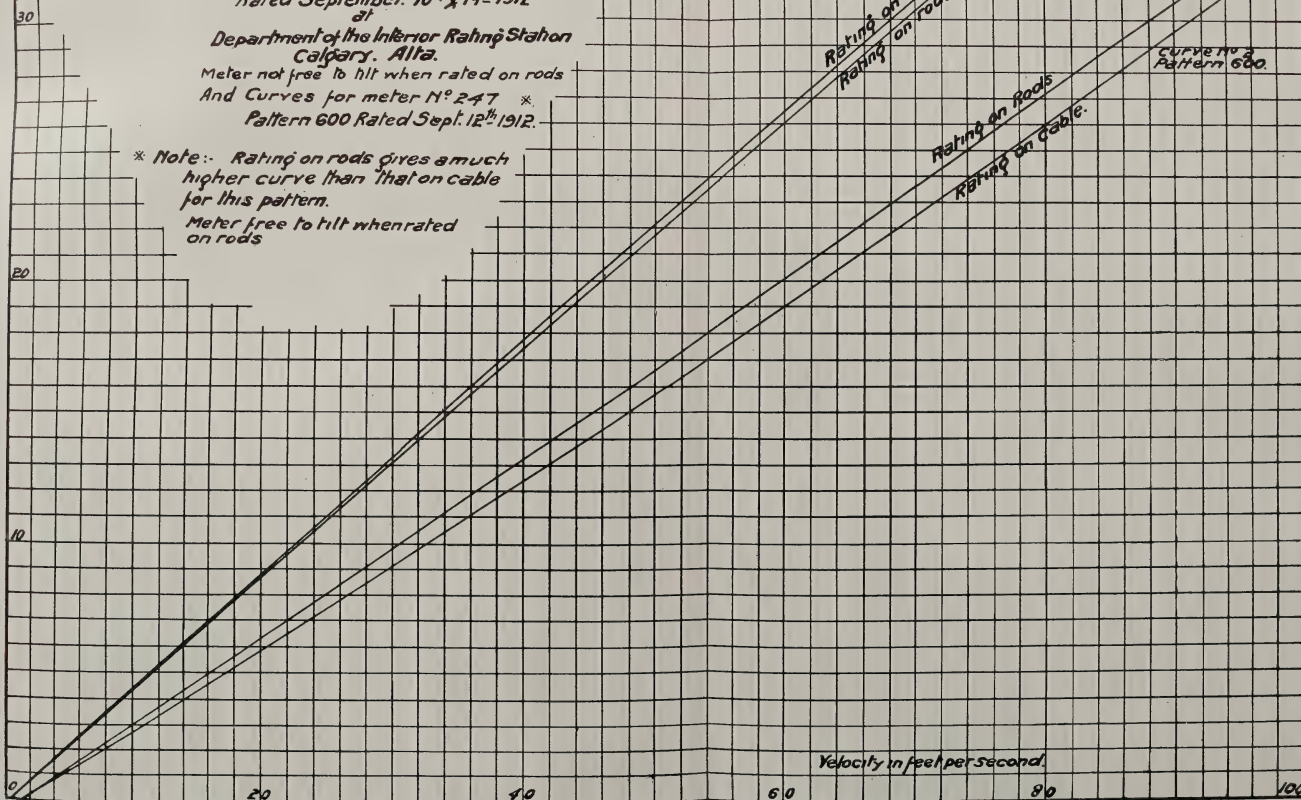 Rated September. 10th & 14th 1912
at
Department of the Interior Rating Station
Calgary. Alta.
Meter not free to tilt when rated on rods
And Curves for meter Nº 247 *
Pattern 600 Rated Sept. 12th 1912.
* Note:- Rating on rods gives a much
higher curve than that on cable
for this pattern.
Meter free to tilt when rated
on rods
30
20
10
0
Rating on
Rating on rods
Rating on Rods
Rating on Cable.
Curve Nº 2
Pattern 600.
Velocity in feet per second.
20 40 60 80 100